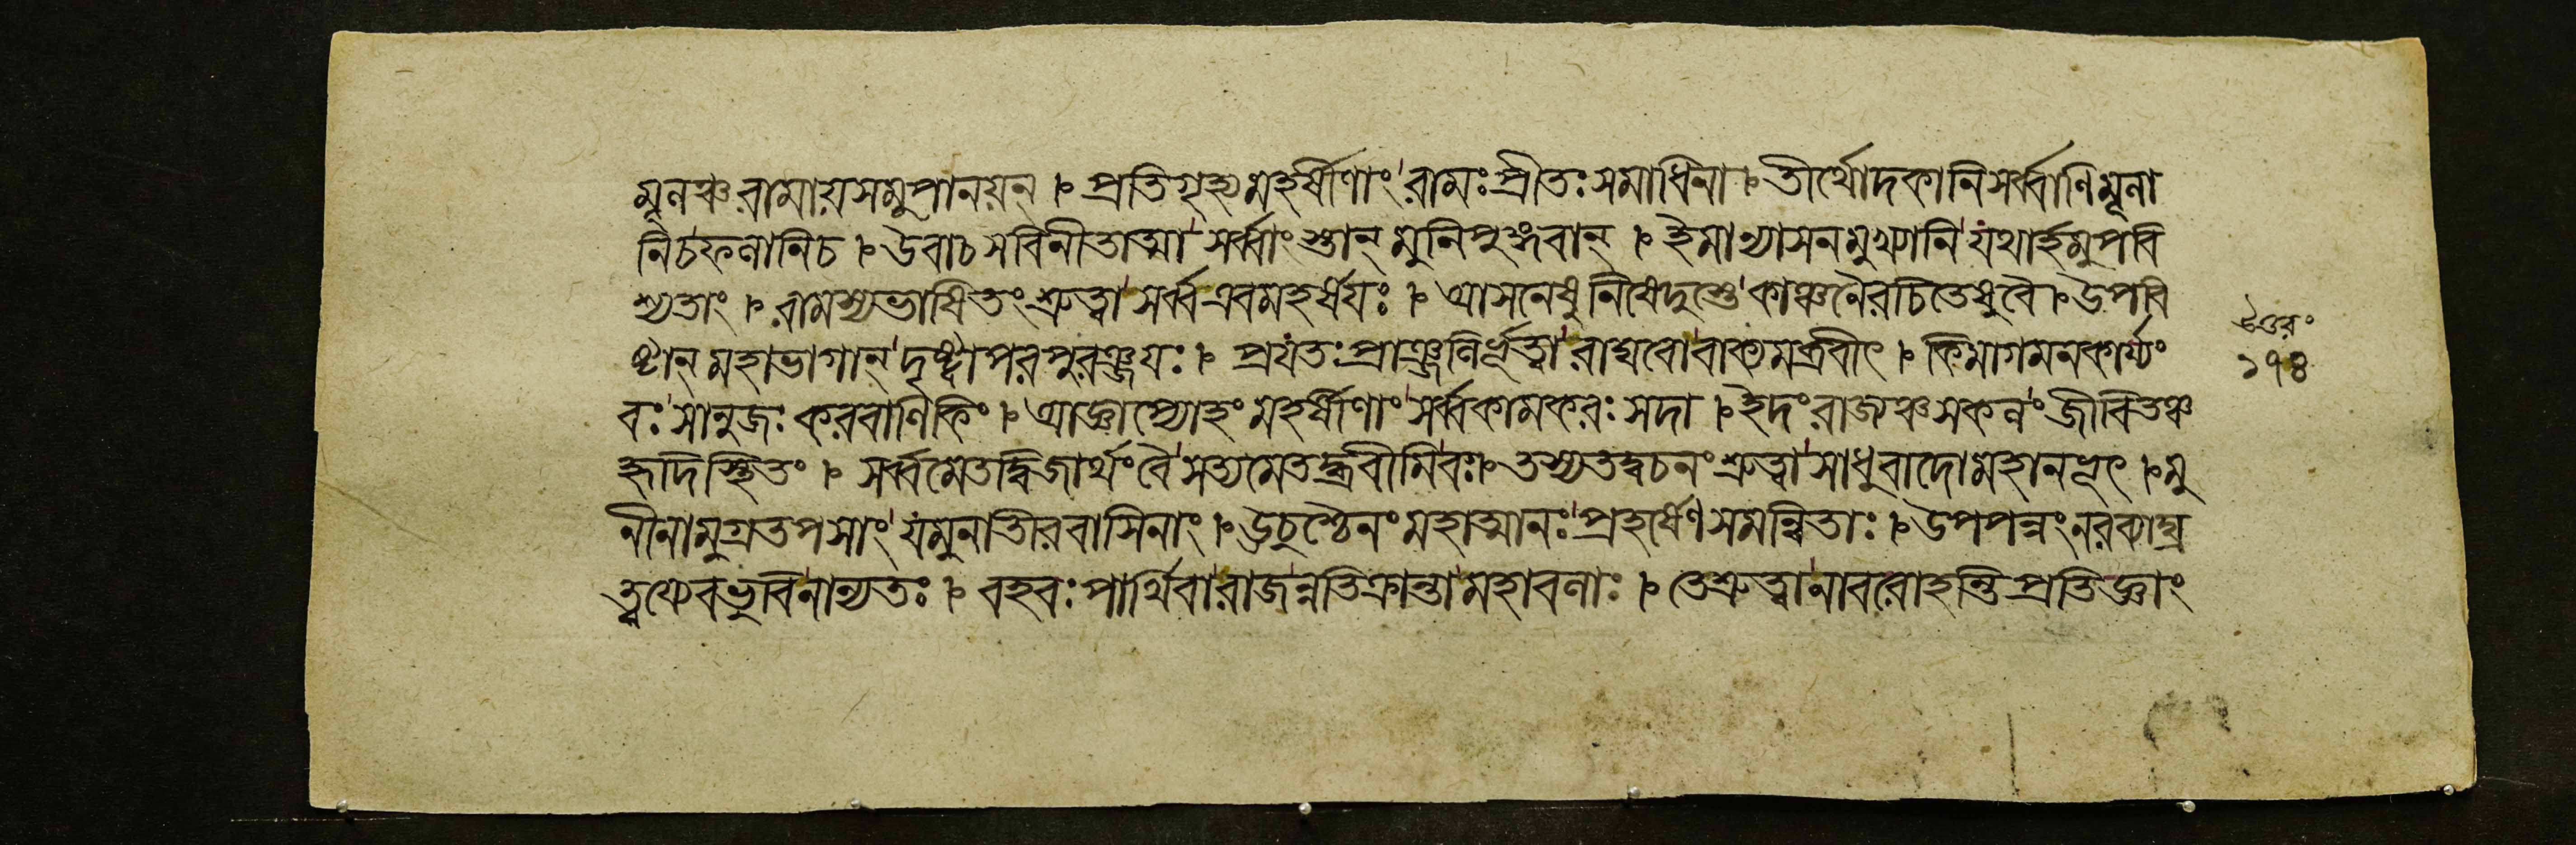 মূলঞ্চরামায়সমুপানয়ন্ । প্রতিগৃহ্যমহর্ষীণাং রামঃপ্রীতঃসমাধিনা । তীর্থোদকানিসর্ব্বাণিমূলা
নিচফলানিচ । উবাচসবিনীতাত্মা সর্ব্বাংস্তান্ মুনিপুঙ্গবান্ । ইমান্যাসনমুখ্যানি যথার্হমুপবি
শ্যতাং । রামস্যভাষিতংশ্রুত্বা সর্ব্বএবমহর্ষয়ঃ । আসনেষুনিষেদুস্তে কাঞ্চনৈরচিতেষুবৈ । উপবি
ষ্টান্ মহাভাগান্ দৃষ্ট্বাপরপুরঞ্জয়ঃ । প্রযতঃপ্রাঞ্জলির্ভূত্বা রাঘবোবাক্যমব্রবীৎ । কিমাগমনকার্য্যং
বঃ সানুজঃ করবাণিকিং । আজ্ঞাপ্যোহং মহর্ষীণাং সর্ব্বকামকরঃ সদা । ইদংরাজ্যঞ্চসকলং জীবিতঞ্চ
হৃদিস্থিতং । সর্ব্বমেতদ্দ্বিজার্থংবৈ সত্যমেতদ্ব্রবীমিবঃ । তস্যতদ্বচনংশ্রুত্বা সাধুবাদোমহানভূৎ । মু
নীনামুগ্রতপসাং যমুনাতীরবাসিনাং । ঊচুশ্চৈনংমহাত্মানঃ প্রহর্ষেণসমন্বিতাঃ । উপপন্নংনরব্যাঘ্র
ত্বয্যেবভুবিনান্যতঃ । বহবঃপার্থিবারাজন্নতিক্রান্তামহাবলাঃ । তেশ্রুত্বানাবরোহন্তিপ্রতিজ্ঞাং
উত্তরং
১৭৪